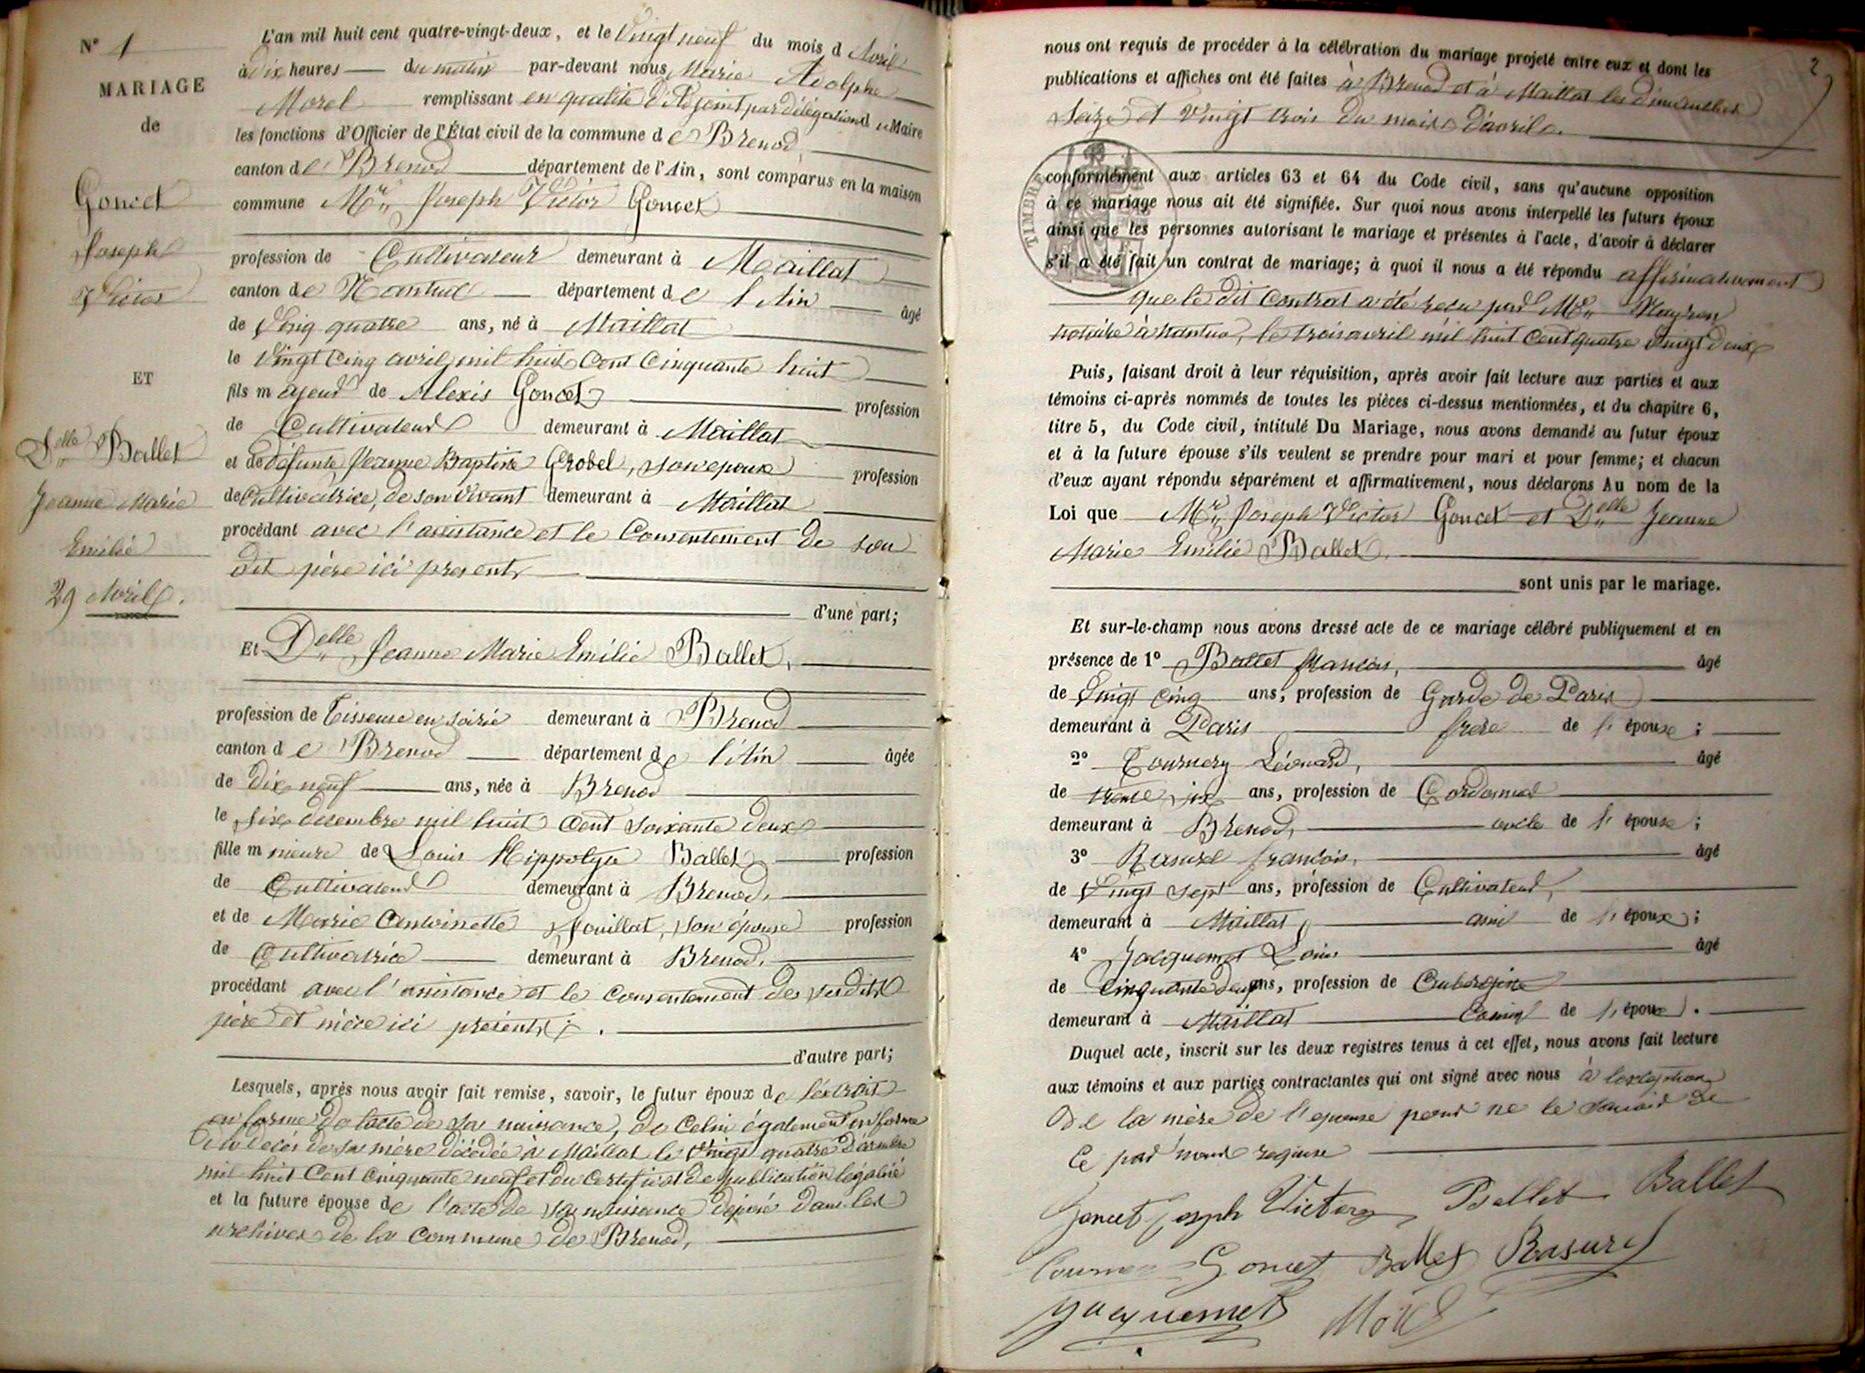 N° 1
MARIAGE
de
Goncet
Joseph
Victor
ET
Delle Ballet
Jeanne Marie
Emilie
29 Avril.
L'an mil huit cent quatre-vingt-deux, et le Vingt neuf du mois d Avril
à dix heures du matin par-devant nous Marie Adolphe
Morel remplissant en qualité d'Adjoint par délégation du Maire
les fonctions d'Officier de l'État civil de la commune de Brenod
canton de Brenod département de l'Ain, sont comparus en la maison
commune Mr Joseph Victor Goncet
profession de Cultivateur demeurant à Maillat
canton de Nantua département de l'Ain âgé
de Vingt quatre ans, né à Maillat
le Vingt cinq avril mil huit cent cinquante huit
fils majeur de Alexis Goncet profession
de Cultivateur demeurant à Maillat
et de défunte Jeanne Baptiste Grobel, son epouse profession
de Cultivatrice, de son vivant demeurant à Maillat
procédant avec l'assistance et le Consentement de son
dit père ici présent
d'une part;
Et Delle Jeanne Marie Emilie Ballet,
profession de Tisseuse en soirie demeurant à Brenod
canton de Brenod département de l'Ain âgée
de dix neuf ans, née à Brenod
le six décembre mil huit cent soixante deux
fille mineure de Louis Hippolyte Ballet profession
de Cultivateur demeurant à Brenod,
et de Marie Antoinette Jouillat, son épouse profession
de Cultivatrice demeurant à Brenod,
procédant avec l'assistance et le consentement des susdits
père et mère ici présents.
d'autre part;
Lesquels, après nous avoir fait remise, savoir, le futur époux de l'extrait
en forme de l'acte de sa naissance, de celui également en forme
du décès de sa mère décédée à Maillat le vingt quatre décembre
mil huit cent cinquante neuf et du certificat de publication légalisé
et la future épouse de l'acte de sa naissance déposé dans les
archives de la commune de Brenod,
2
nous ont requis de procéder à la célébration du mariage projeté entre eux et dont les
publications et affiches ont été faites à Brenod et à Maillat les dimanches
Seize et vingt trois du mois d'avril.
TIMBRE
conformément aux articles 63 et 64 du Code civil, sans qu'aucune opposition
à ce mariage nous ait été signifiée. Sur quoi nous avons interpellé les futurs époux
ainsi que les personnes autorisant le mariage et présentes à l'acte, d'avoir à déclarer
s'il a été fait un contrat de mariage; à quoi il nous a été répondu affirmativement
que le dit contrat a été reçu par Me
notaire à Nantua, le trois avril mil huit cent quatre vingt deux
Puis, faisant droit à leur réquisition, après avoir fait lecture aux parties et aux
témoins ci-après nommés de toutes les pièces ci-dessus mentionnées, et du chapitre 6,
titre 5, du Code civil, intitulé Du Mariage, nous avons demandé au futur époux
et à la future épouse s'ils veulent se prendre pour mari et pour femme; et chacun
d'eux ayant répondu séparément et affirmativement, nous déclarons Au nom de la
Loi que Mr Joseph Victor Goncet et Delle Jeanne
Marie Emilie Ballet.
sont unis par le mariage.
Et sur-le-champ nous avons dressé acte de ce mariage célébré publiquement et en
présence de 1° Ballet françois, âgé
de Vingt cinq ans, profession de Garde de Paris
demeurant à Paris frère de l'épouse;
2° Tournery Léonard, âgé
de trente six ans, profession de Cordonnier
demeurant à Brenod, oncle de l'épouse;
3° Rasurel françois, âgé
de Vingt sept ans, profession de Cultivateur,
demeurant à Maillat, ami de l'époux;
4° Jacquemet Louis âgé
de Cinquante deux ans, profession de Aubergiste
demeurant à Maillat Cousin de l'époux.
Duquel acte, inscrit sur les deux registres tenus à cet effet, nous avons fait lecture
aux témoins et aux parties contractantes qui ont signé avec nous à l'exception
de la mère de l'epouse pour ne le savoir de
ce par nous requise
Goncet Joseph Victor Ballet Ballet
Goncet Ballet Rasurel
Jacquemet Morel